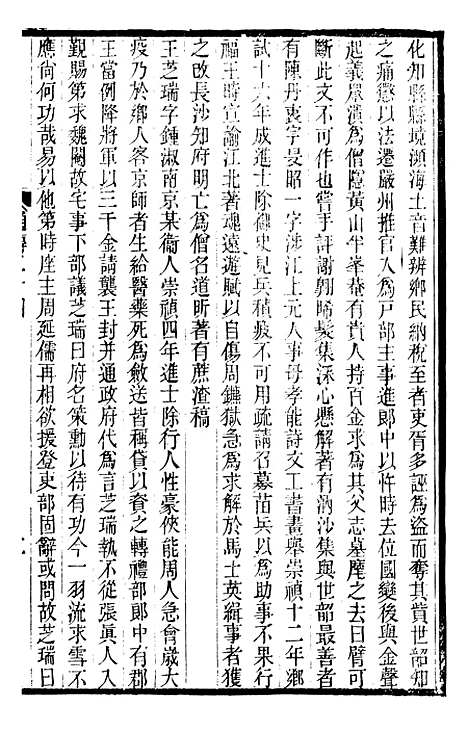 化知縣縣境瀕海土音難辨鄉民納稅至者吏胥多誣為盜而奪其貲世韶知
之痛懲以法遷嚴州推官入為戶部主事進郎中以忤時去位國變後與金聲
起義眾潰為僧隱黃山半峯菴有貴者持百金求為其父志墓麾之去曰臂可
斷此文不可得也嘗手評謝翱晞髮集深心懸解著有汭沙集與世韶最善者
有陳丹衷字旻昭一字涉江上元人事母孝能詩文工書畫舉崇禎十二年鄉
試十六年成進士除御史見兵積疲不可用疏請召募苗兵以為助事不果行
福王時宣諭江北著魂遠遊賦以自傷周鑣獄急為求解於馬士英緝事者獲
之改長沙知府明亡為僧名道昕著有蔗渣稿
王芝瑞字鍾淑南京某衞人崇禎四年進士除行人性豪俠能周人急會歲大
疫乃於鄉人客京師者生給醫藥死為斂送皆稱貸以資之轉禮部郎中有郡
王當例降將軍以三千金請襲王封并通政府代為言芝瑞執不從張眞人入
覲賜第求魏閹故宅事下部議芝瑞曰府名策勳以待有功今一羽流求雪不
應尙何功哉易以他第時座主周延儒再相欲援登吏部固辭或問故芝瑞曰